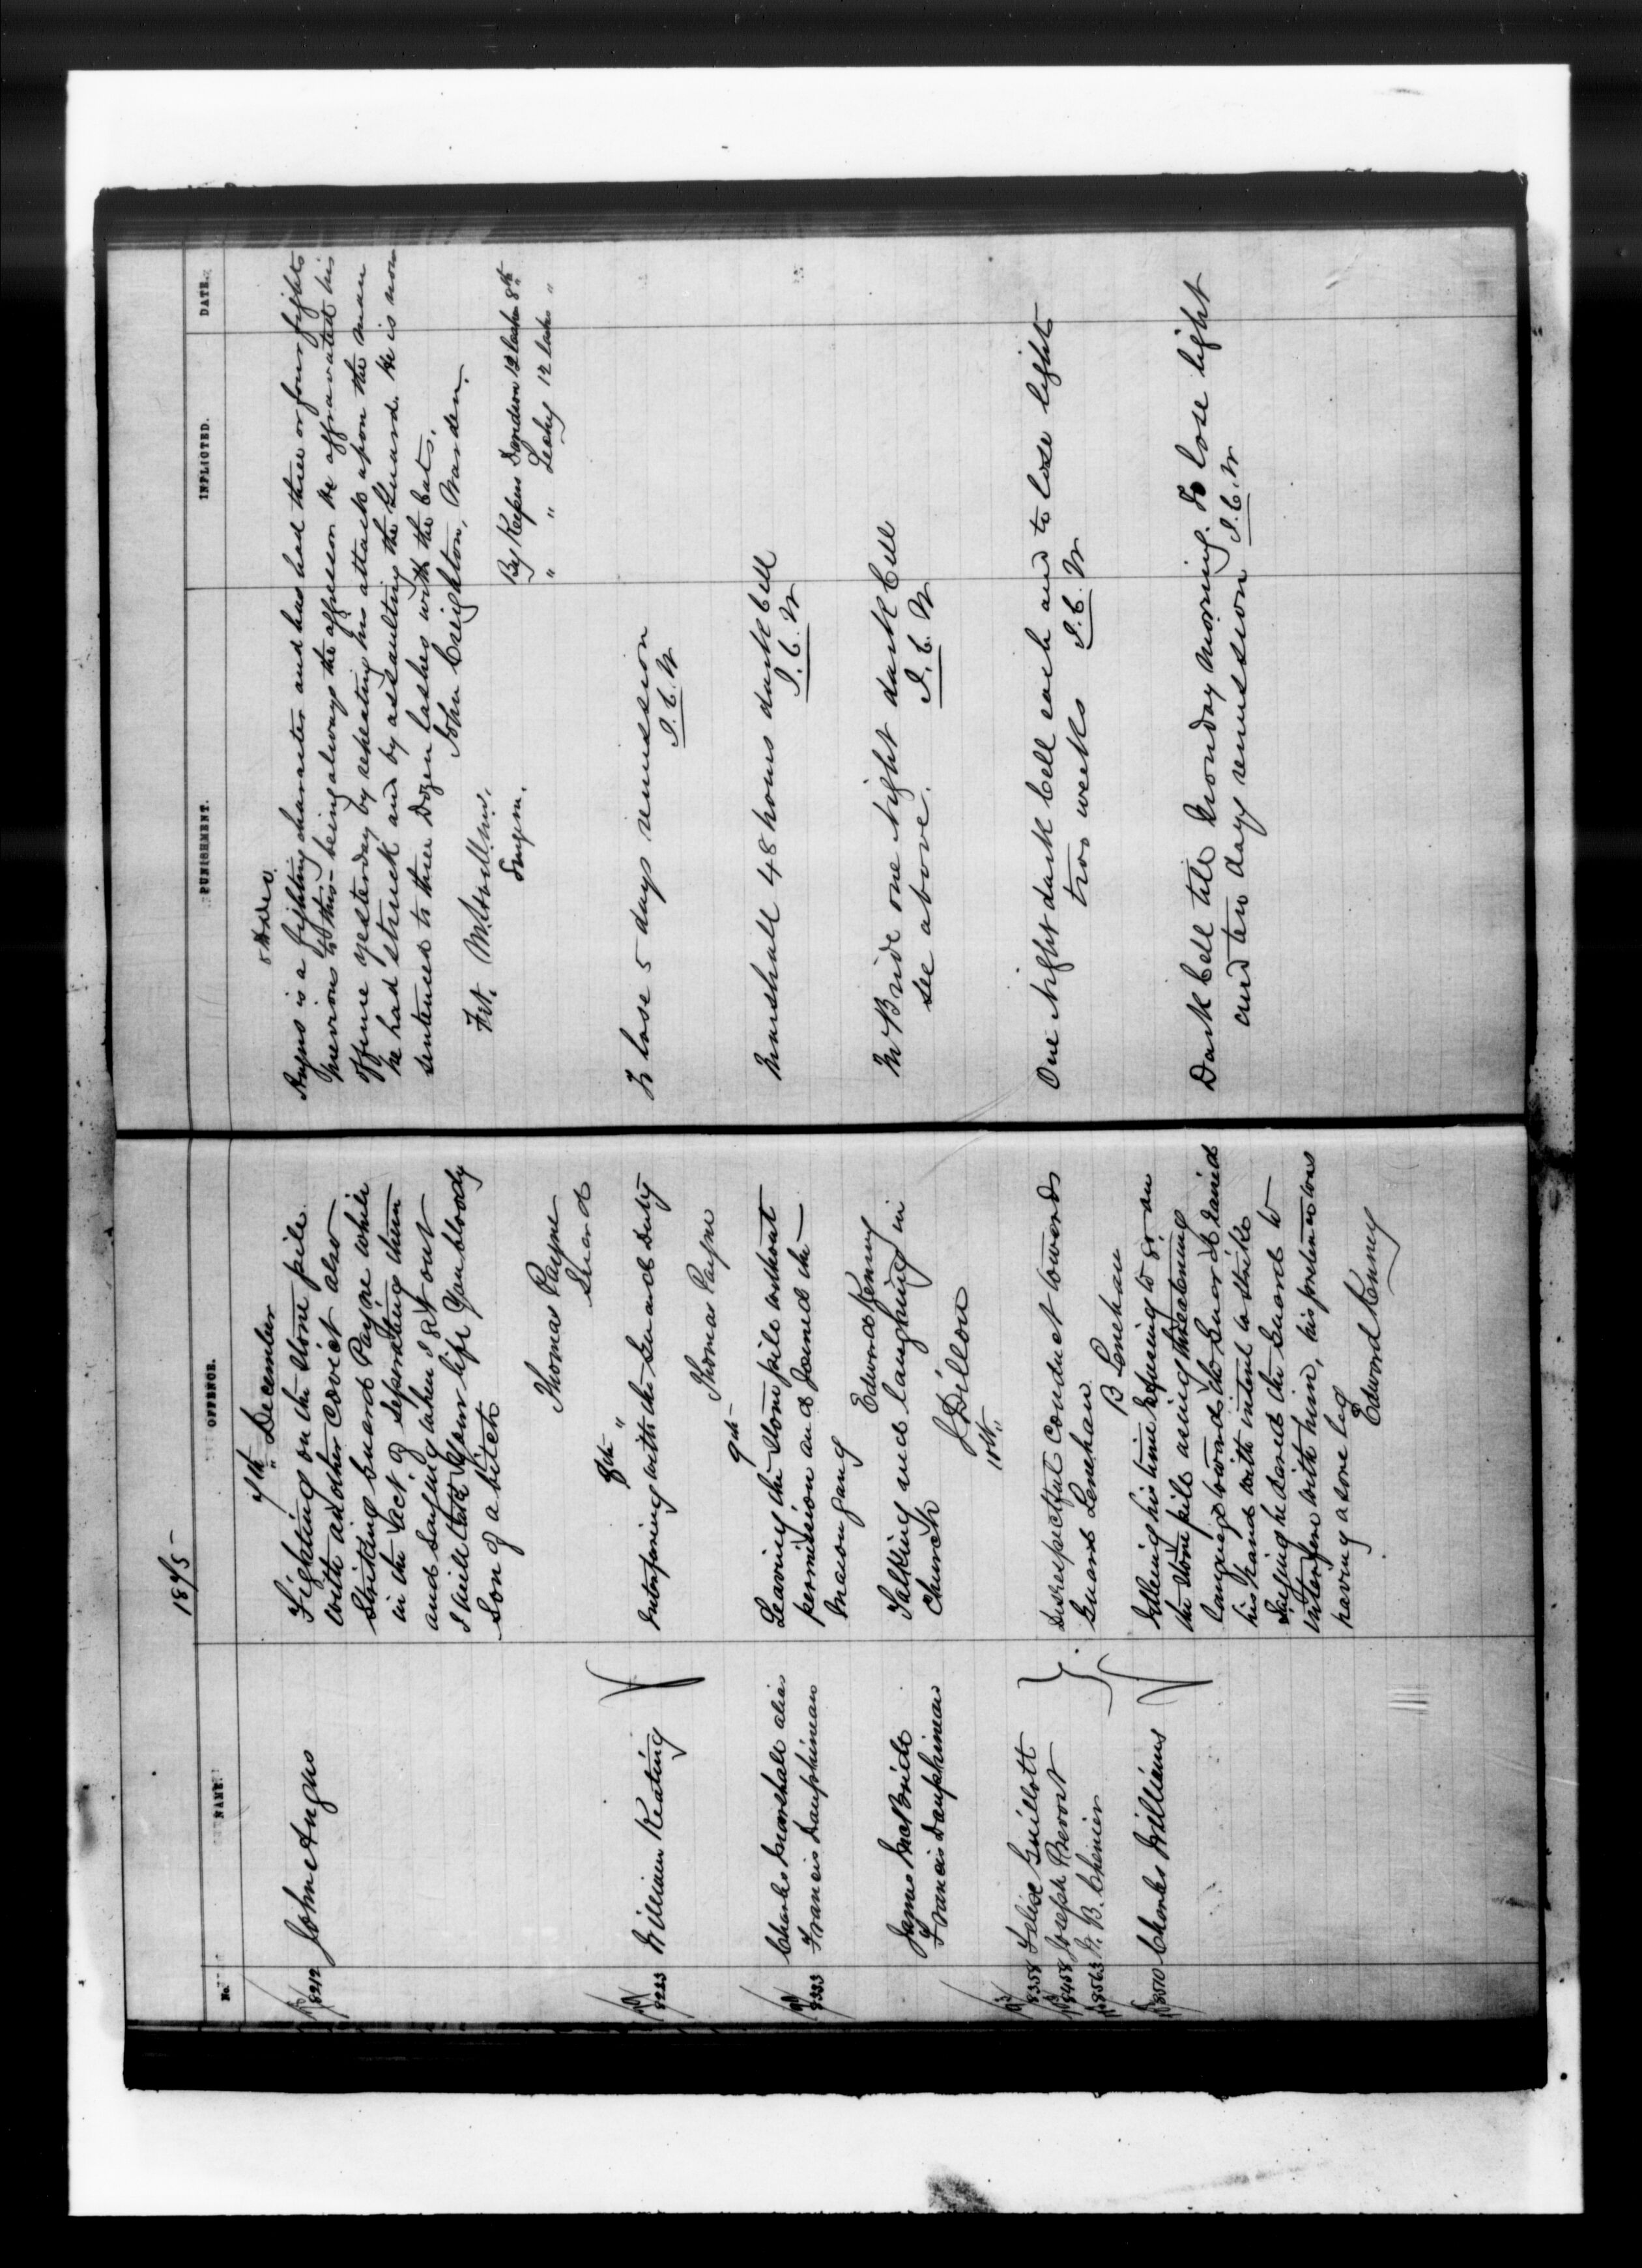 1875
No.
NAME.
OFFENCE.
7th December
8212 John Angus
Fighting on the Stone pile
with another Covict also
Striking Guard Payne while
in the act of seperating them
and Saying when I git out
I will take your life You bloody
Son of a bitch
Thomas Payne
Guard
8th "
8223 William Keating
Interfering with the Guards Duty
Thomas Payne
9th
Charles Marshall alias
8333 Francis Dauphineau
Leaving the Stone pile without
permission and Joined the
Mason gang
Edward Kenny
James McBride
Francis Dauphineau
Talking and laughing in
Church
J Dillon
10th "
8358 Felix Guillott
8458 Joseph Prevost
8563 N. B. Chenier
Disrespectful conduct towards
Guard Lenehan
B Lenehan
8510 Charles Williams
Idleing his time Refusing to go on
the Stone pile using threatening
language towards the Guard & raised
his hand with intent to strike
Saying he dared the Guard to
interfere with him, his pretence was
having a sore leg
Edward Kenney
PUNISHMENT.
INFLICTED.
DATE.
8th Dec.
Angus is a fighting character and has had three or four fights
previous to this - being always the aggressor. He aggravated his
offence yesterday by repeating his attack upon the man
he had struck and by assaulting the Guard. He is now
sentenced to three Dozen lashes with the cats.
John Creighton, Warden.
Fit.
Surgeon.
By Keeper 12 lashes 8th
" " Leahy 12 lashes "
To lose 5 days remission
J. C. W
Marshall 48 hours dark Cell
J. C. W
McBride one Night dark Cell
see above.
J. C. W
One Night dark Cell each and to lose light
two weeks
J. C. W
Dark Cell till Monday Morning. To lose light
and ten days remission
J. C. W